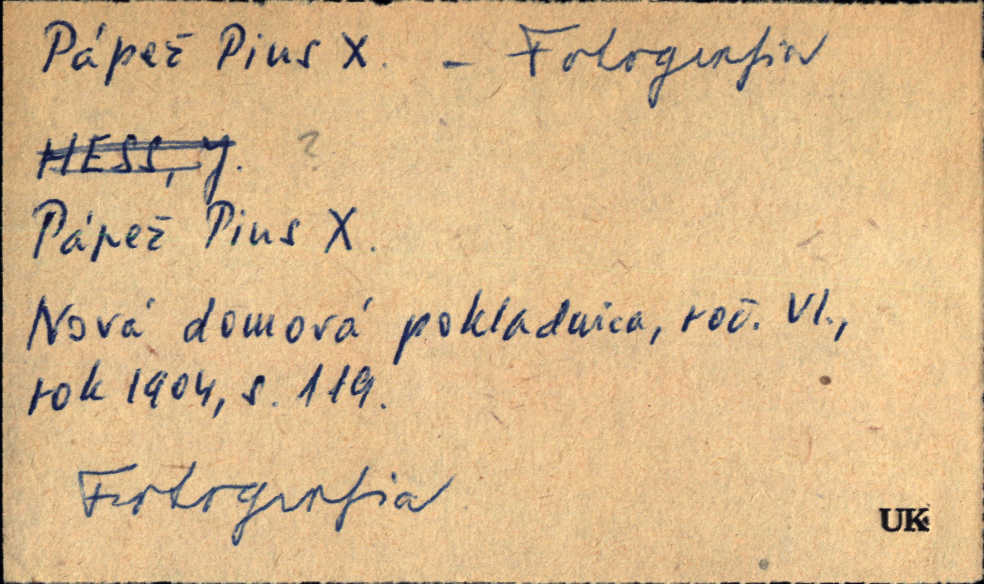 Pápež Pius X. - Fotografia
HESS, Y. ?
Pápež Pius X.
Nová domová pokladnica, roč. VI.,
rok 1904, s. 119.
Fotografia
UK